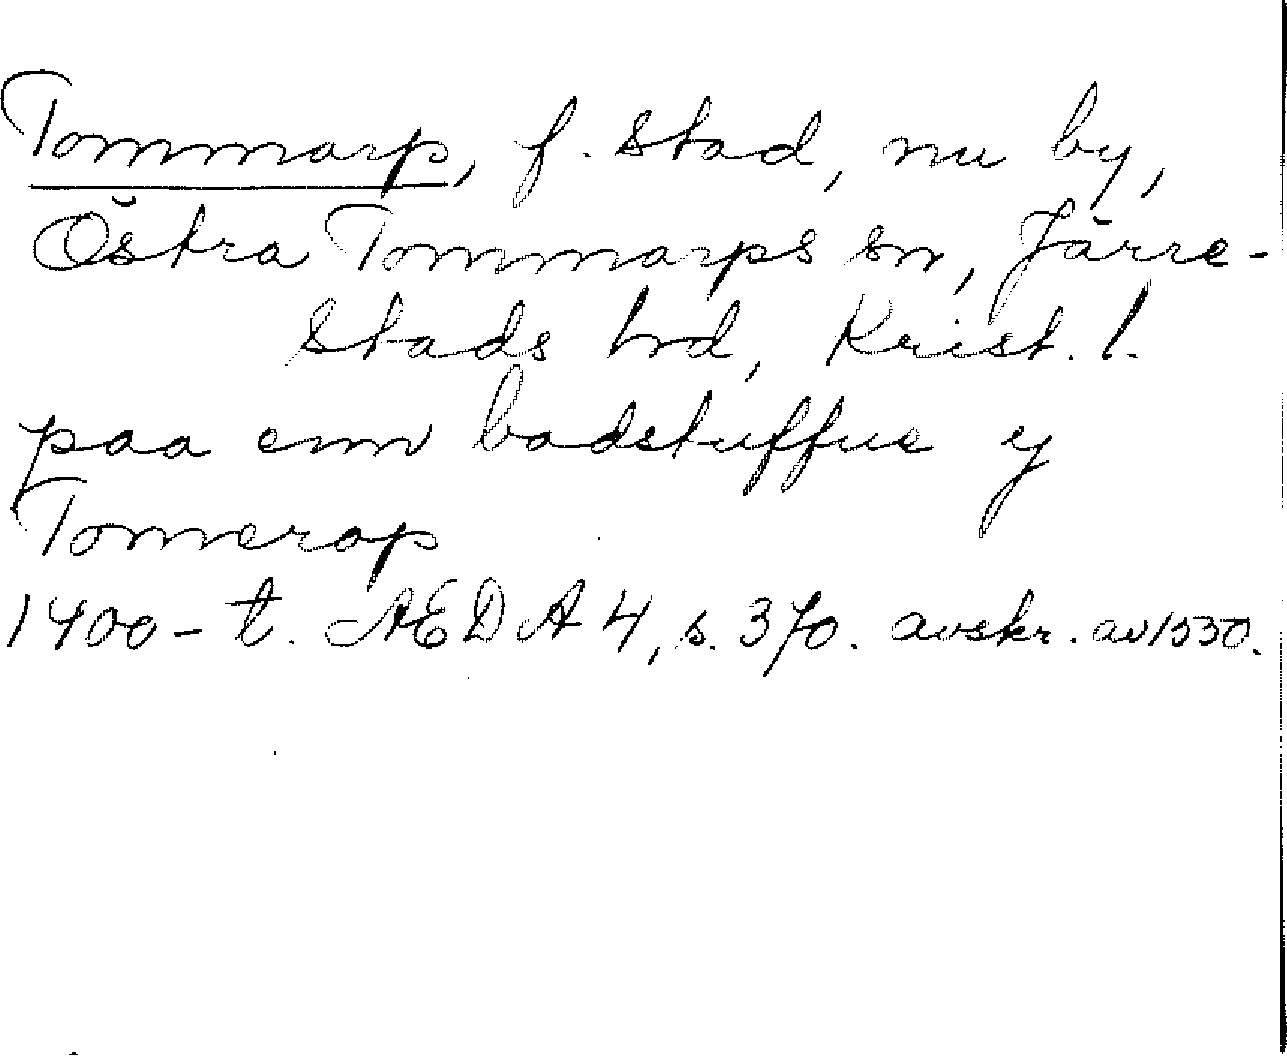 Tommarp, f. stad, nu by,
Östra Tommarps sn, Järre-
stads hd, Krist. l.
paa enn badstuffue y
Tomerop
1400-t. ÆDA 4, s. 370. avskr. av 1550.